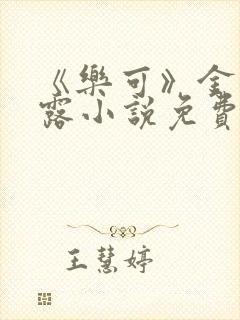 《樂可》金
露小說免費
王慧婷